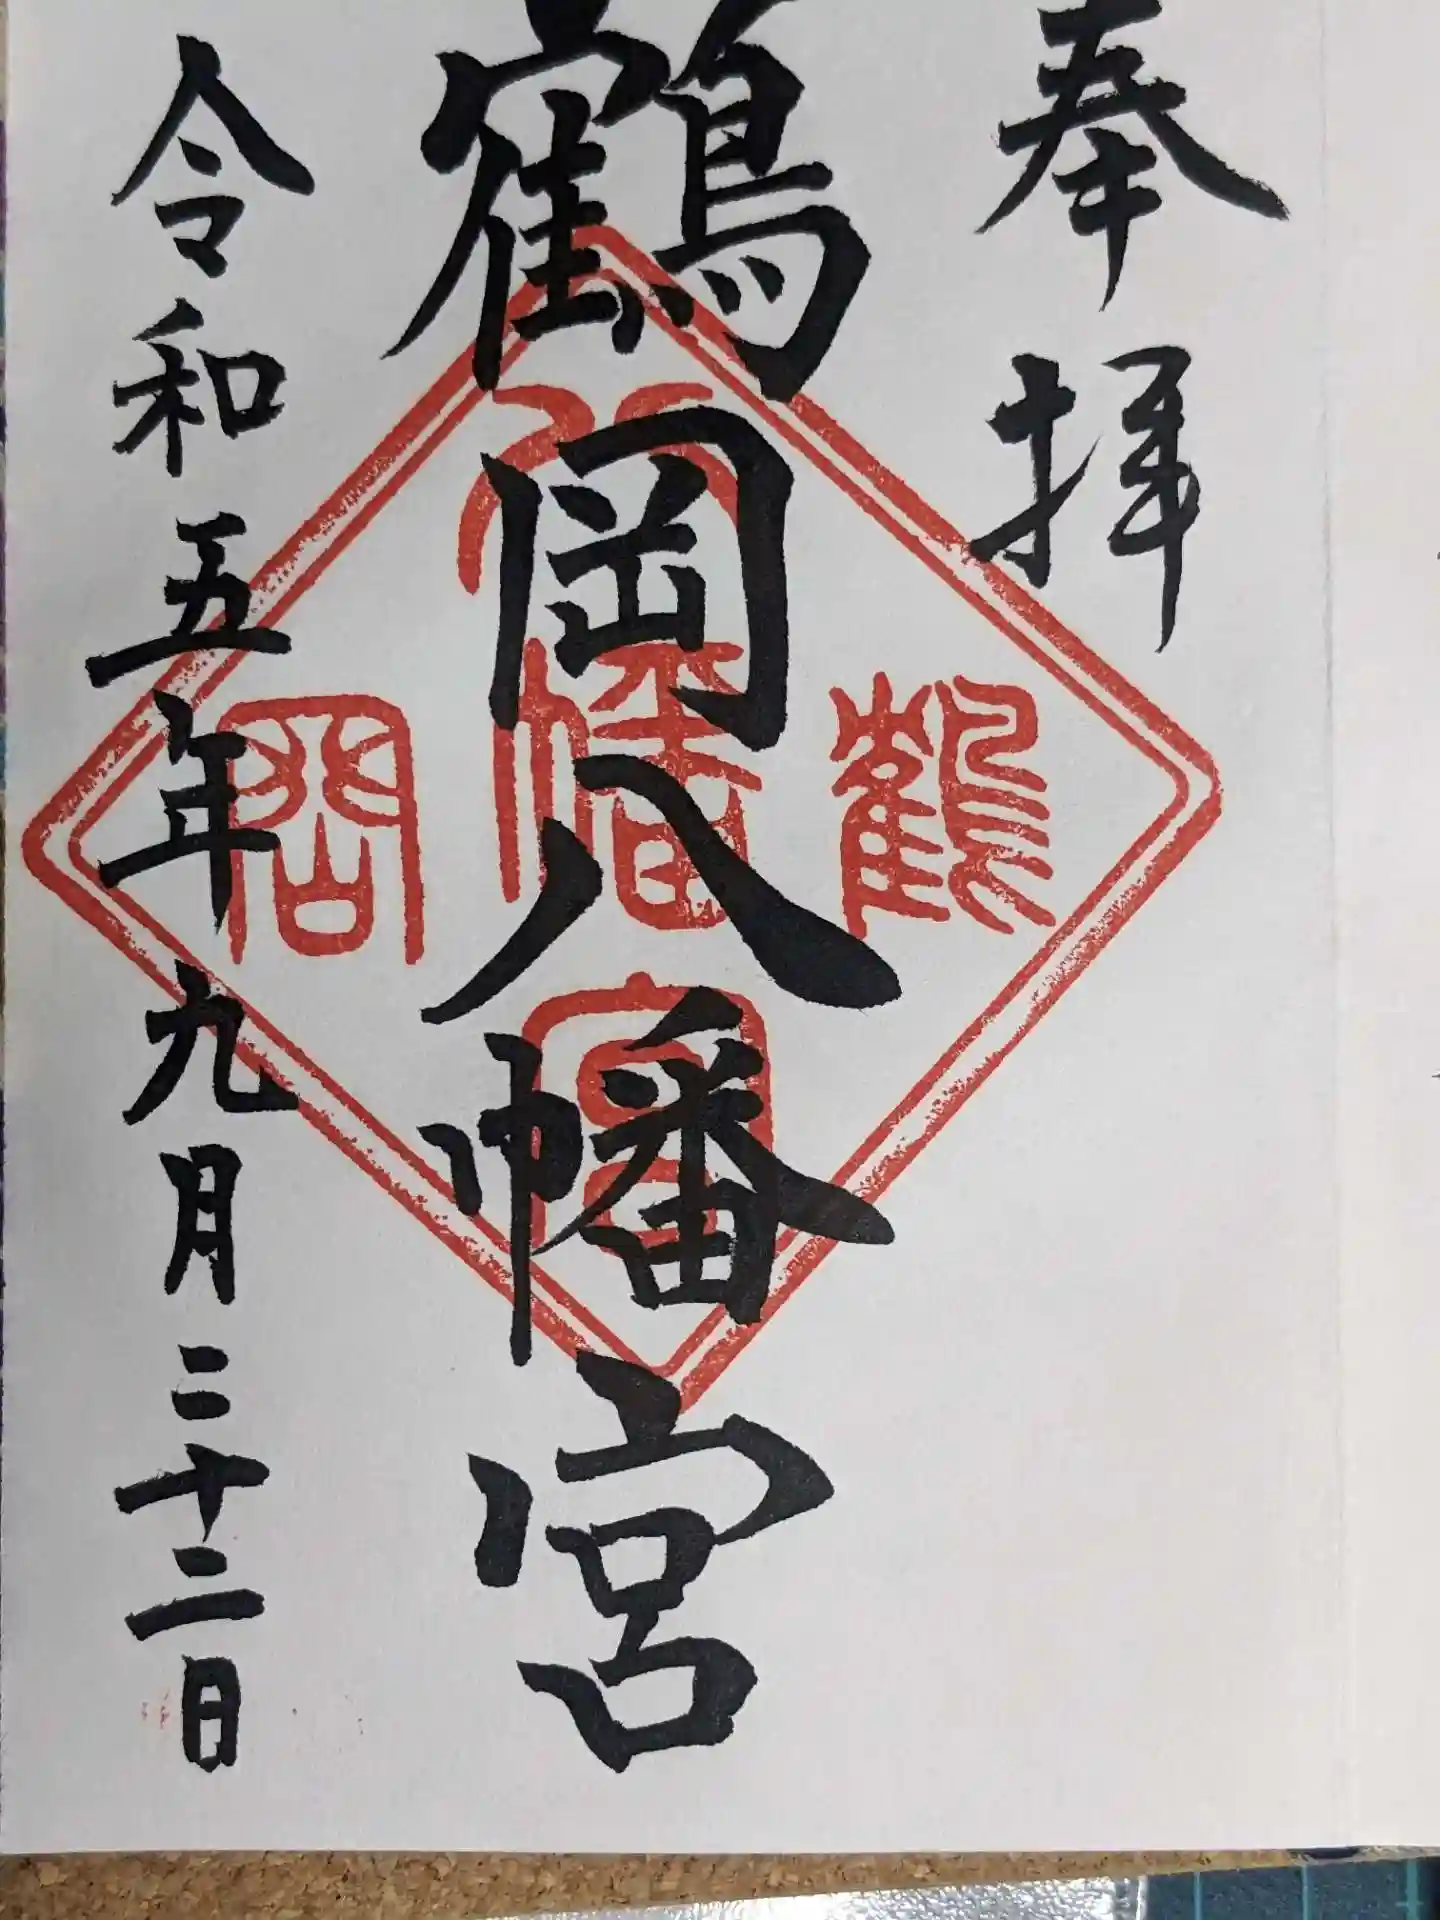 奉拝
鶴岡八幡宮
令和五年九月二十二日
八
鶴幡岡
宮